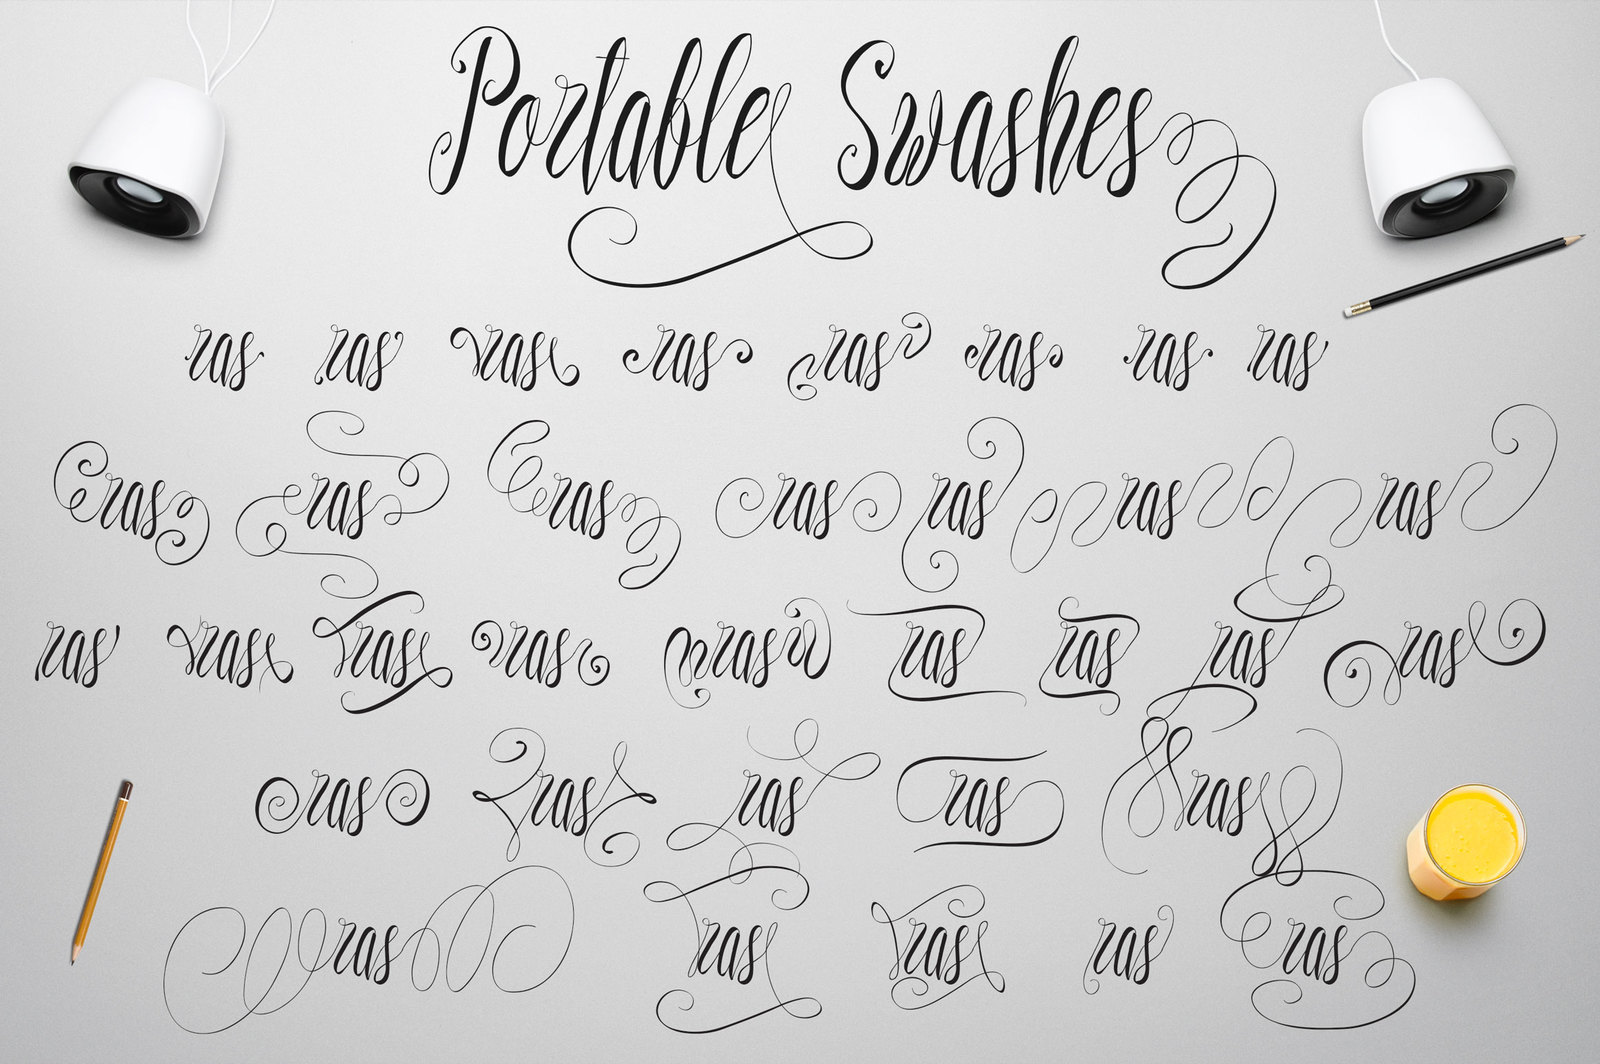 Portable Swashes
ras ras ras ras ras ras ras ras
ras ras ras ras ras ras ras
ras ras ras ras ras ras ras ras ras
ras ras ras ras ras
ras ras ras ras ras